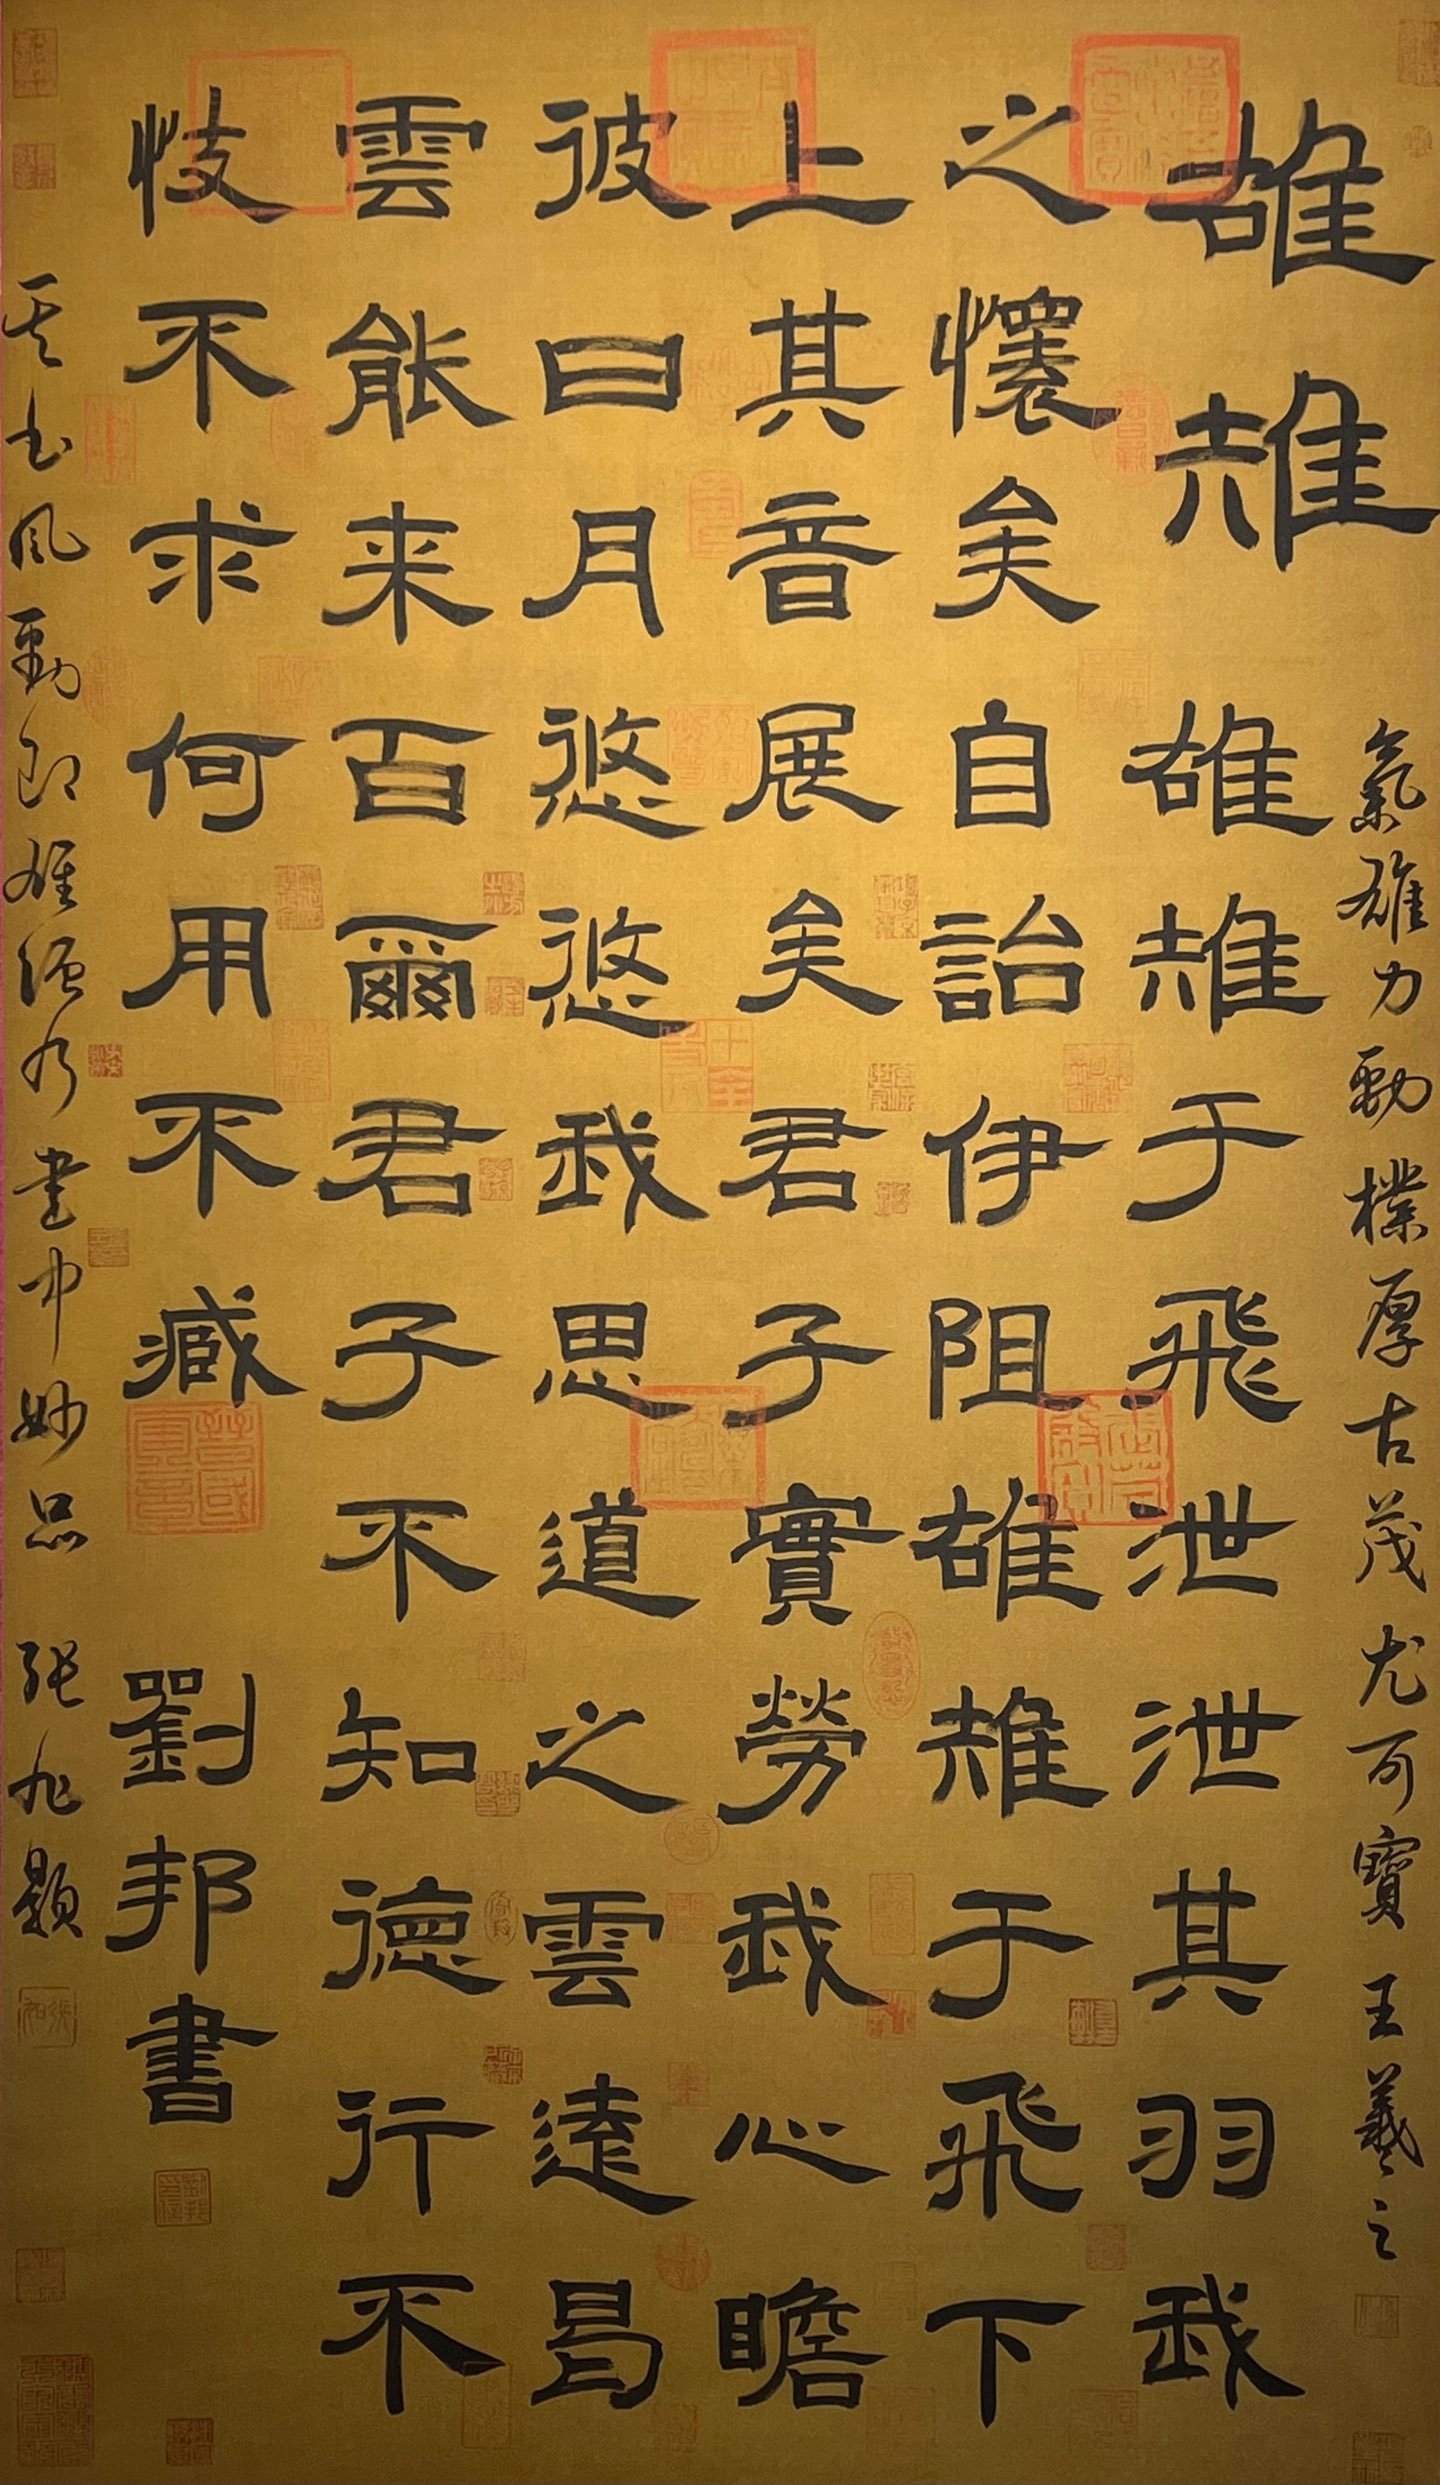 氣雄力勁樸厚古茂尤可寶王羲之
雄雉 雄雉于飛泄泄其羽我
之懷矣自詒伊阻雄雉于飛下
上其音展矣君子實勞我心瞻
彼日月悠悠我思道之雲遠曷
雲能来百爾君子不知德行不
忮不求何用不臧 劉邦書
其书風勁即雄强乃書中妙品 張旭題